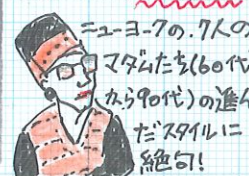 ニューヨークの、7人の
マダムたち(60代
から90代)の進ん
だスタイルに
絶句!